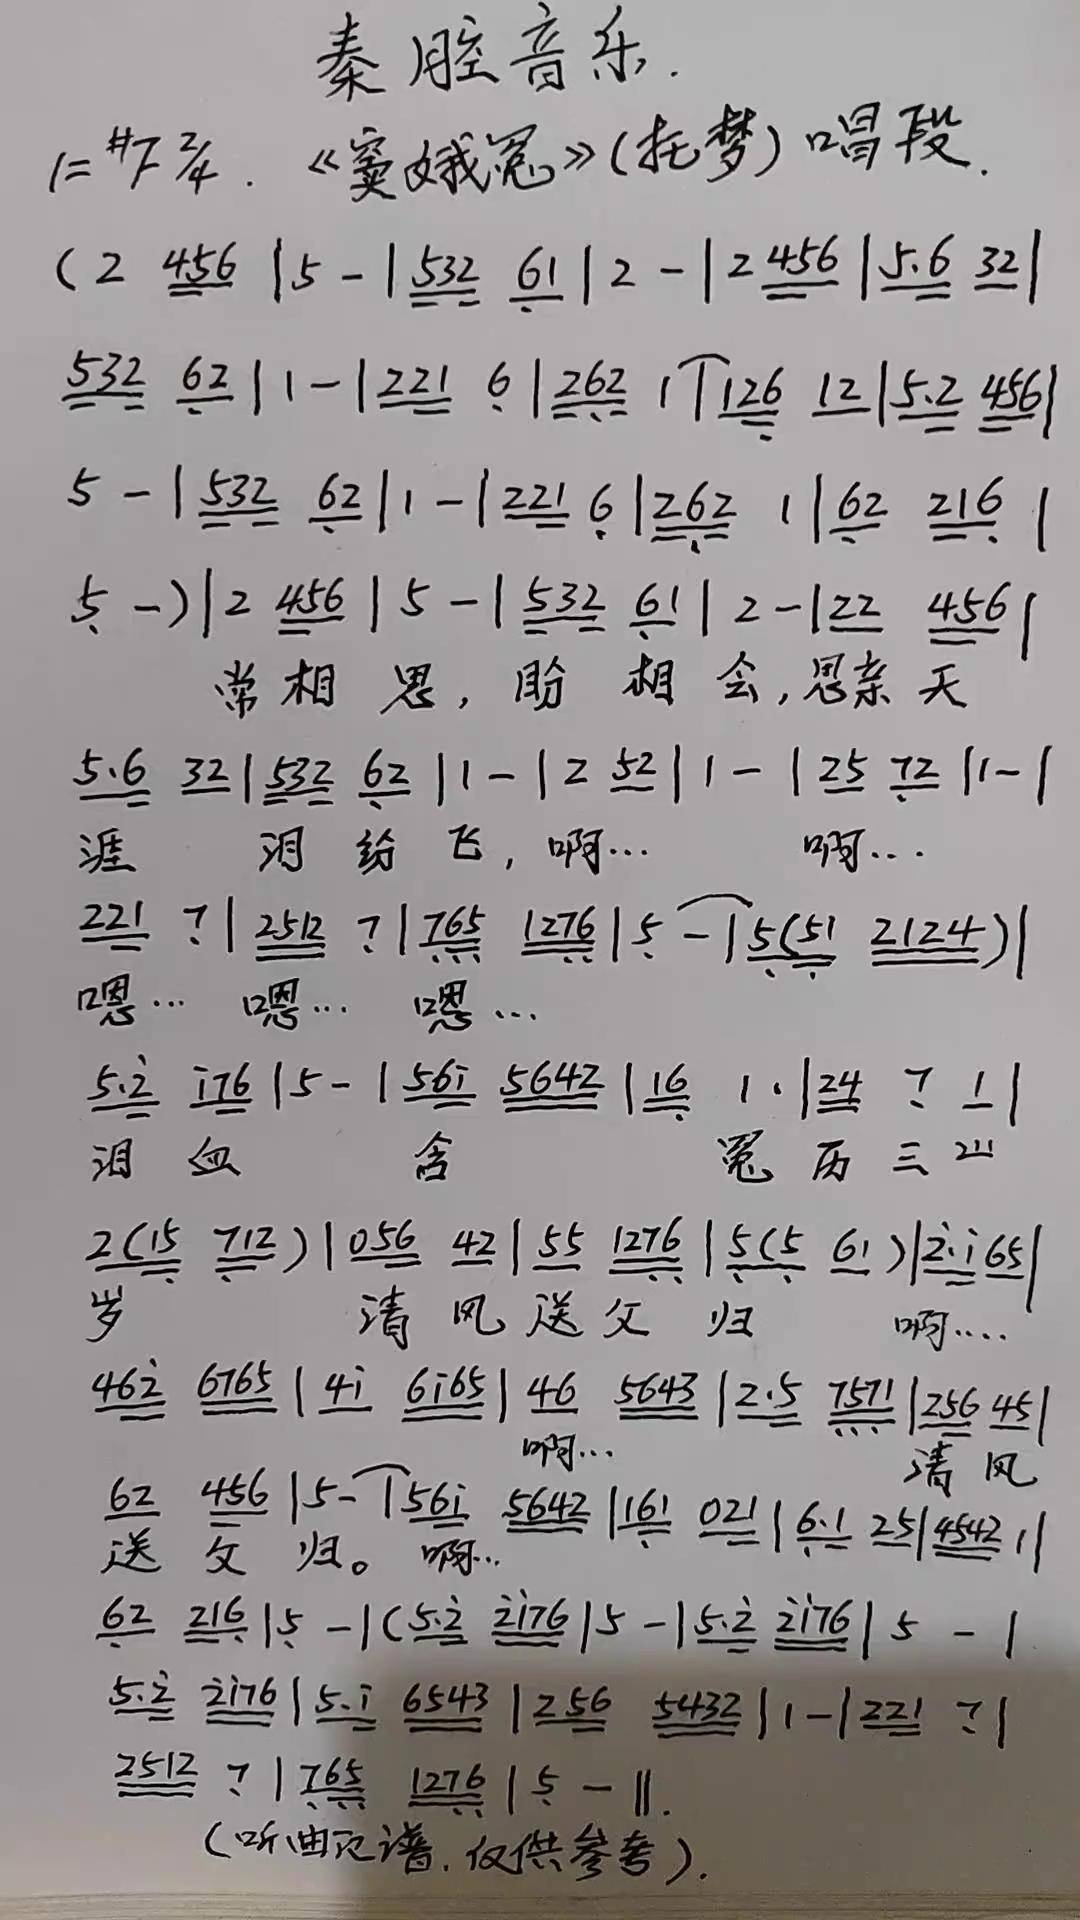 秦腔音乐.
1=#F 2/4. 《窦娥冤》(托梦)唱段.
(2 456|5 -|532 61|2 -|2 456|5.6 32|
532 62|1 -|221 6|262 1|126 12|5.2 456|
5 -|532 62|1 -|221 6|262 1|62 216|
5 -)|2 456|5 -|532 61|2 -|22 456|
常相思,盼相会,思亲天
5.6 32|532 62|1 -|2 52|1 -|25 72|1-|
涯 泪纷飞,啊… 啊…
221 7|2512 7|765 1276|5 -|5(51 2124)|
嗯… 嗯… 嗯…
5.2̇ i76|5-|56i 5642|16 1.|24 7 1|
泪血 含 冤历三
2(15 712)|056 42|55 1276|5(5 61)|2̇.i65|
岁 清风送父归 啊….
462̇ 6765|4i 6i65|46 5643|2.5 7571|256 45|
啊… 清风
62 456|5-|56i 5642|161 021|6.1 25|4542 1|
送父归。啊…
62 216|5 -|(5.2̇ 2̇i76|5 -|5.2̇ 2̇i76|5 -|
5.2̇ 2̇i76|5.i 6543|256 5432|1-|221 7|
2512 7|765 1276|5 -‖.
(听曲记谱.仅供参考).